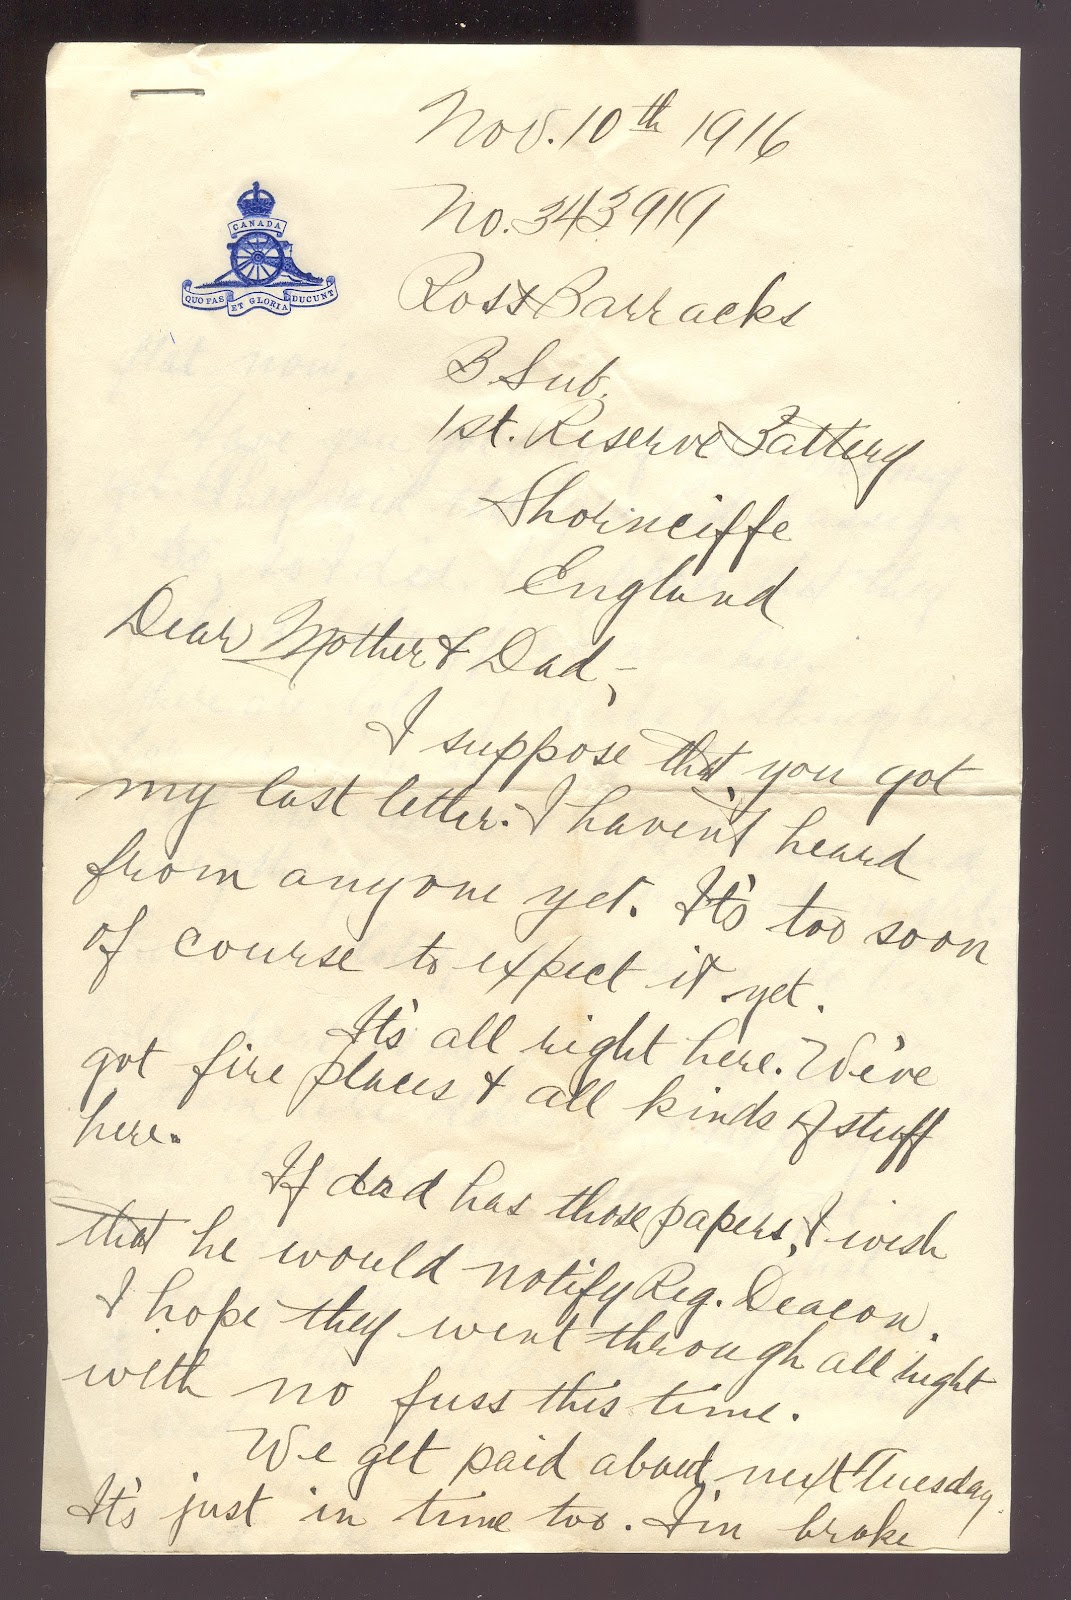 Nov. 10th 1916
CANADA
QUO FAS ET GLORIA DUCUNT
No. 343919
Ross Barracks
B Sub.
1st. Reserve Battery
Shornciffe
England
Dear Mother & Dad,-
I suppose that you got
my last letter. I haven't heard
from anyone yet. It's too soon
of course to expect it yet.
It's all right here. We've
got fire places & all kinds of stuff
here.
If dad has those papers, I wish
that he would notify Reg. Deacon.
I hope they went through all right
with no fuss this time.
We get paid about next Tuesday.
It's just in time too. I'm broke